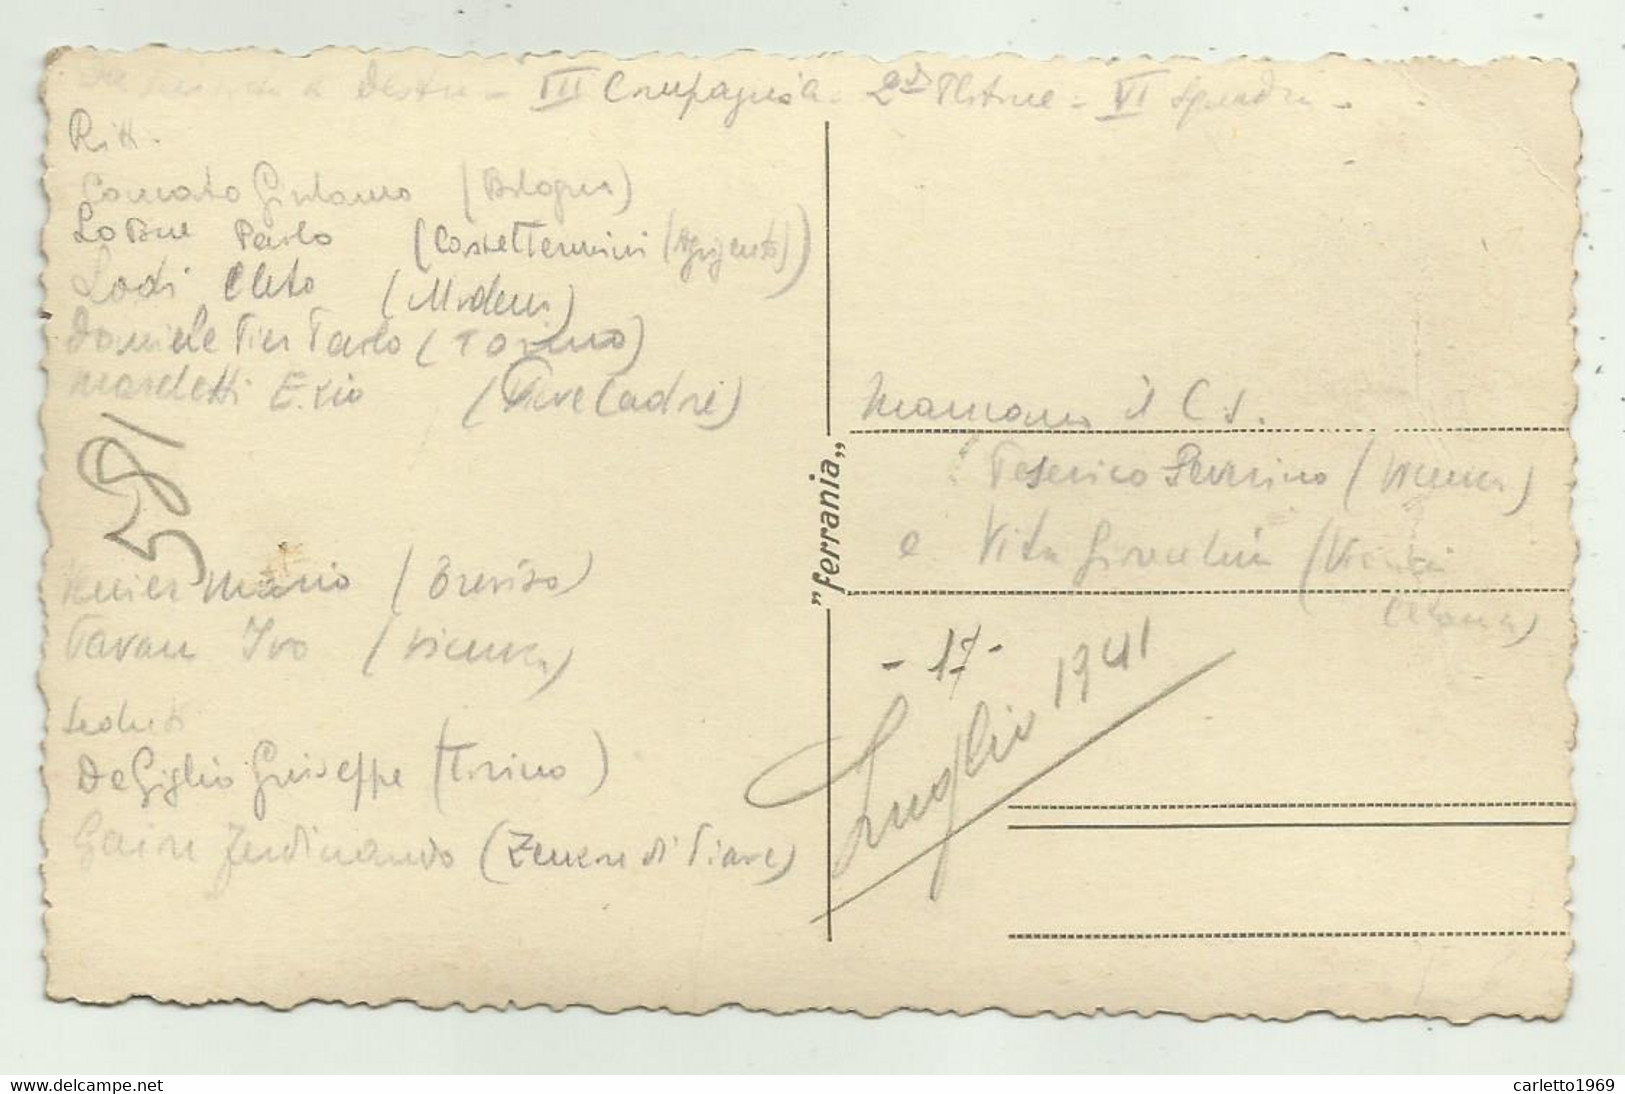 Da sinistra a Destra - III Compagnia - 2° Plotone - VI Squadra -
Ritti -
Girolamo (Bologna)
Lo Paolo (Casteltermini (Agrigento))
Lodi Cleto (Modena)
Daniele Pier Paolo (Torino)
Ezio (Pieve Cadore)
581
Mario (Treviso)
Pavan Ivo (Vicenza)
Seduti
De Giglio Giuseppe (Torino)
Ferdinando (Zenson di Piave)
"ferrania"
Mancano il C. S.
Severino (Vicenza)
e Vita Gioacchino
- 17 -
Luglio 1941
www.delcampe.net
carletto1969